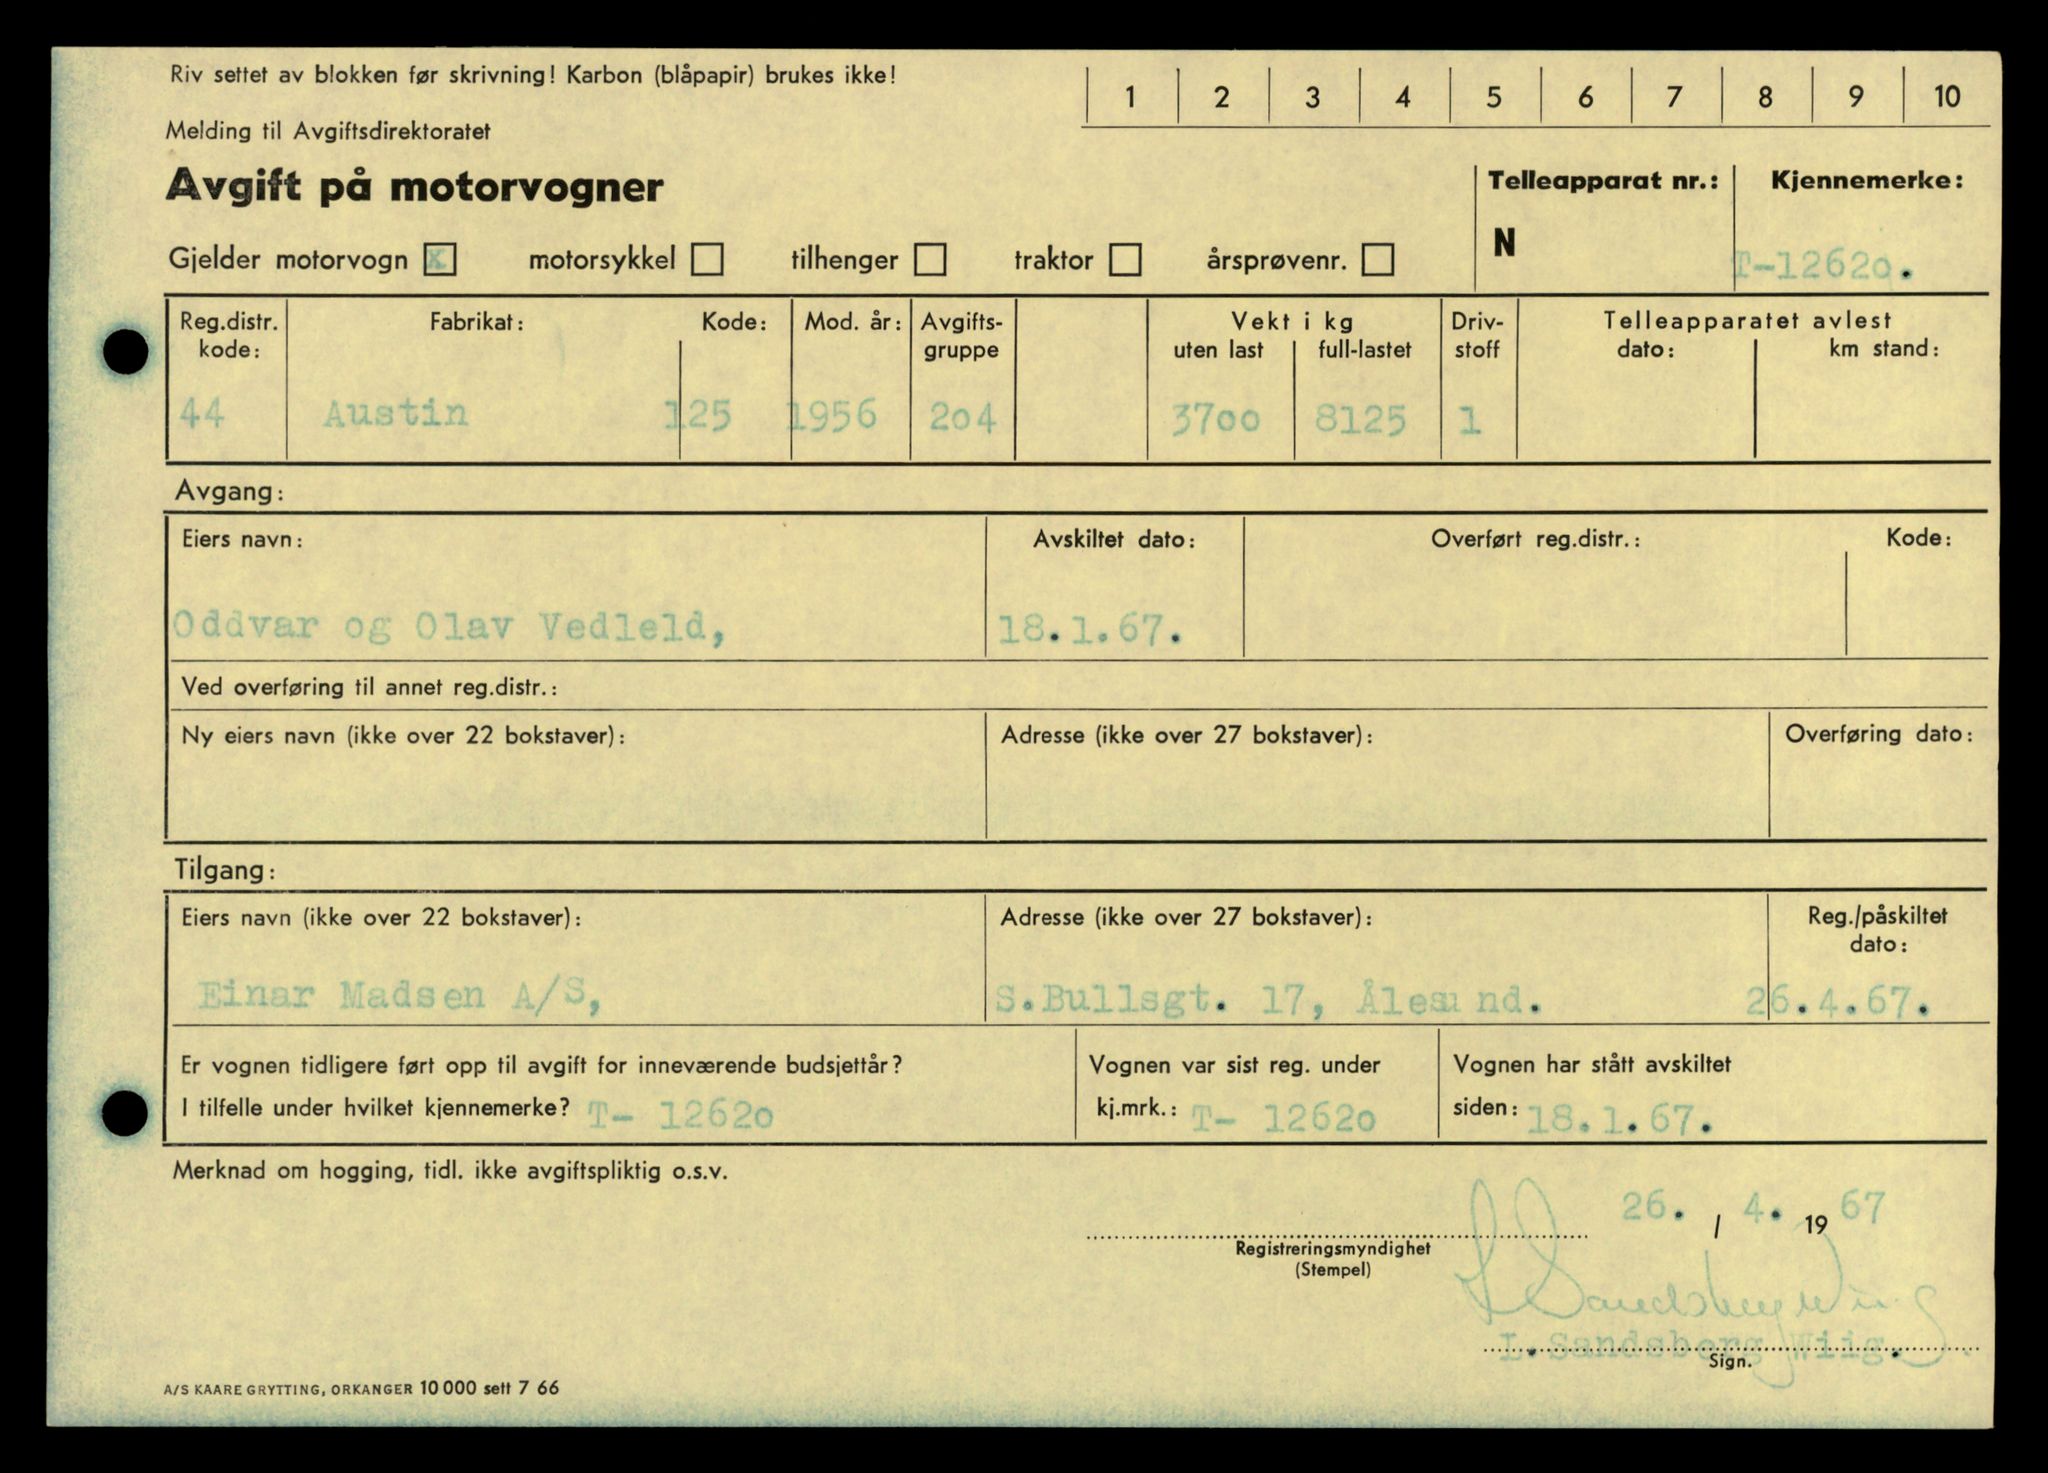 Riv settet av blokken før skrivning! Karbon (blåpapir) brukes ikke!
1 2 3 4 5 6 7 8 9 10
Melding til Avgiftsdirektoratet
Avgift på motorvogner
Telleapparat nr.: Kjennemerke:
N T-12620.
Gjelder motorvogn x motorsykkel tilhenger traktor årsprøvenr.
Reg.distr. kode: Fabrikat: Kode: Mod. år: Avgifts-gruppe Vekt i kg uten last full-lastet Driv-stoff Telleapparatet avlest dato: km stand:
44 Austin 125 1956 204 3700 8125 1
Avgang:
Eiers navn: Avskiltet dato: Overført reg.distr.: Kode:
Oddvar og Olav Vedleld, 18.1.67.
Ved overføring til annet reg.distr.:
Ny eiers navn (ikke over 22 bokstaver): Adresse (ikke over 27 bokstaver): Overføring dato:
Tilgang:
Eiers navn (ikke over 22 bokstaver): Adresse (ikke over 27 bokstaver): Reg./påskiltet dato:
Einar Madsen A/S, S.Bullsgt. 17, Ålesund. 26.4.67.
Er vognen tidligere ført opp til avgift for inneværende budsjettår? Vognen var sist reg. under Vognen har stått avskiltet
I tilfelle under hvilket kjennemerke? T- 12620 kj.mrk.: T- 12620 siden: 18.1.67.
Merknad om hogging, tidl. ikke avgiftspliktig o.s.v.
26. / 4. 19 67
Registreringsmyndighet
(Stempel)
L Sandsborg Wiig
L.Sandsborg Wiig.
Sign.
A/S KAARE GRYTTING, ORKANGER 10 000 sett 7 66